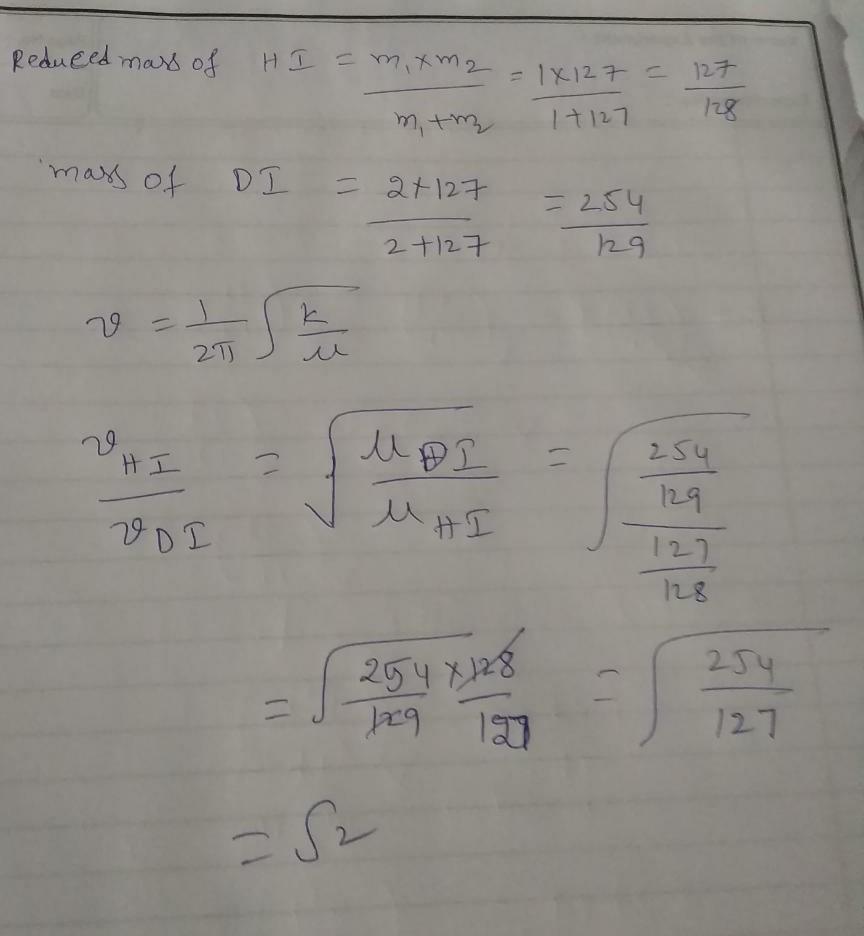 Reduced mass of HI = m₁×m₂/m₁+m₂ = 1×127/1+127 = 127/128
mass of DI = 2×127/2+127 = 254/129
ν = 1/2π √k/μ
ν HI/ν DI = √μ DI/μ HI = √254/129/127/128
= √254/129 × 128/127 = √254/127
= √2